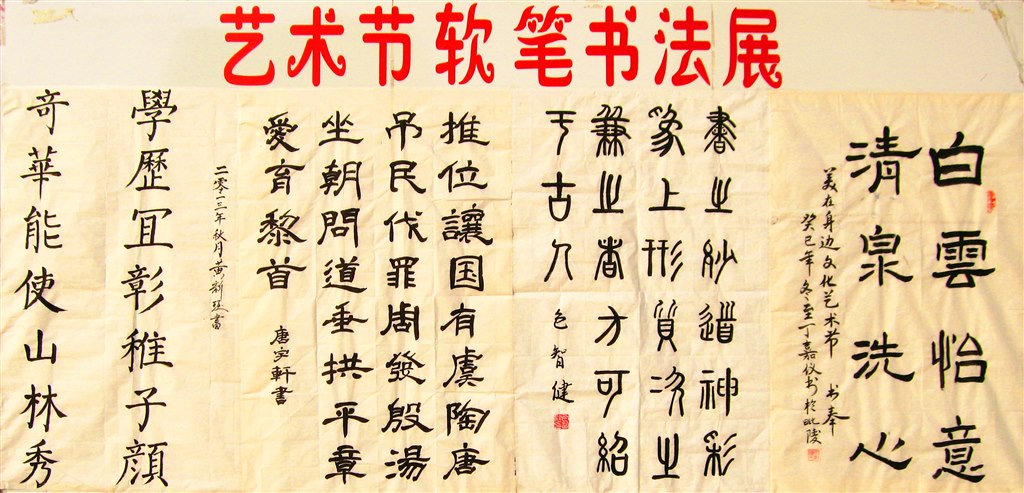 艺术节软笔书法展
白雲怡意
清泉洗心
美在身边文化艺术节 书奉
癸巳年冬至丁嘉仪书於毗陵
書之妙道神彩
為上形質次之
兼之者方可紹
于古人
包智健
推位讓国有虞陶唐
吊民伐罪周發殷湯
坐朝問道垂拱平章
愛育黎首
唐宇軒書
二零一三年秋月黄書
學歷宜彰稚子顔
奇華能使山林秀